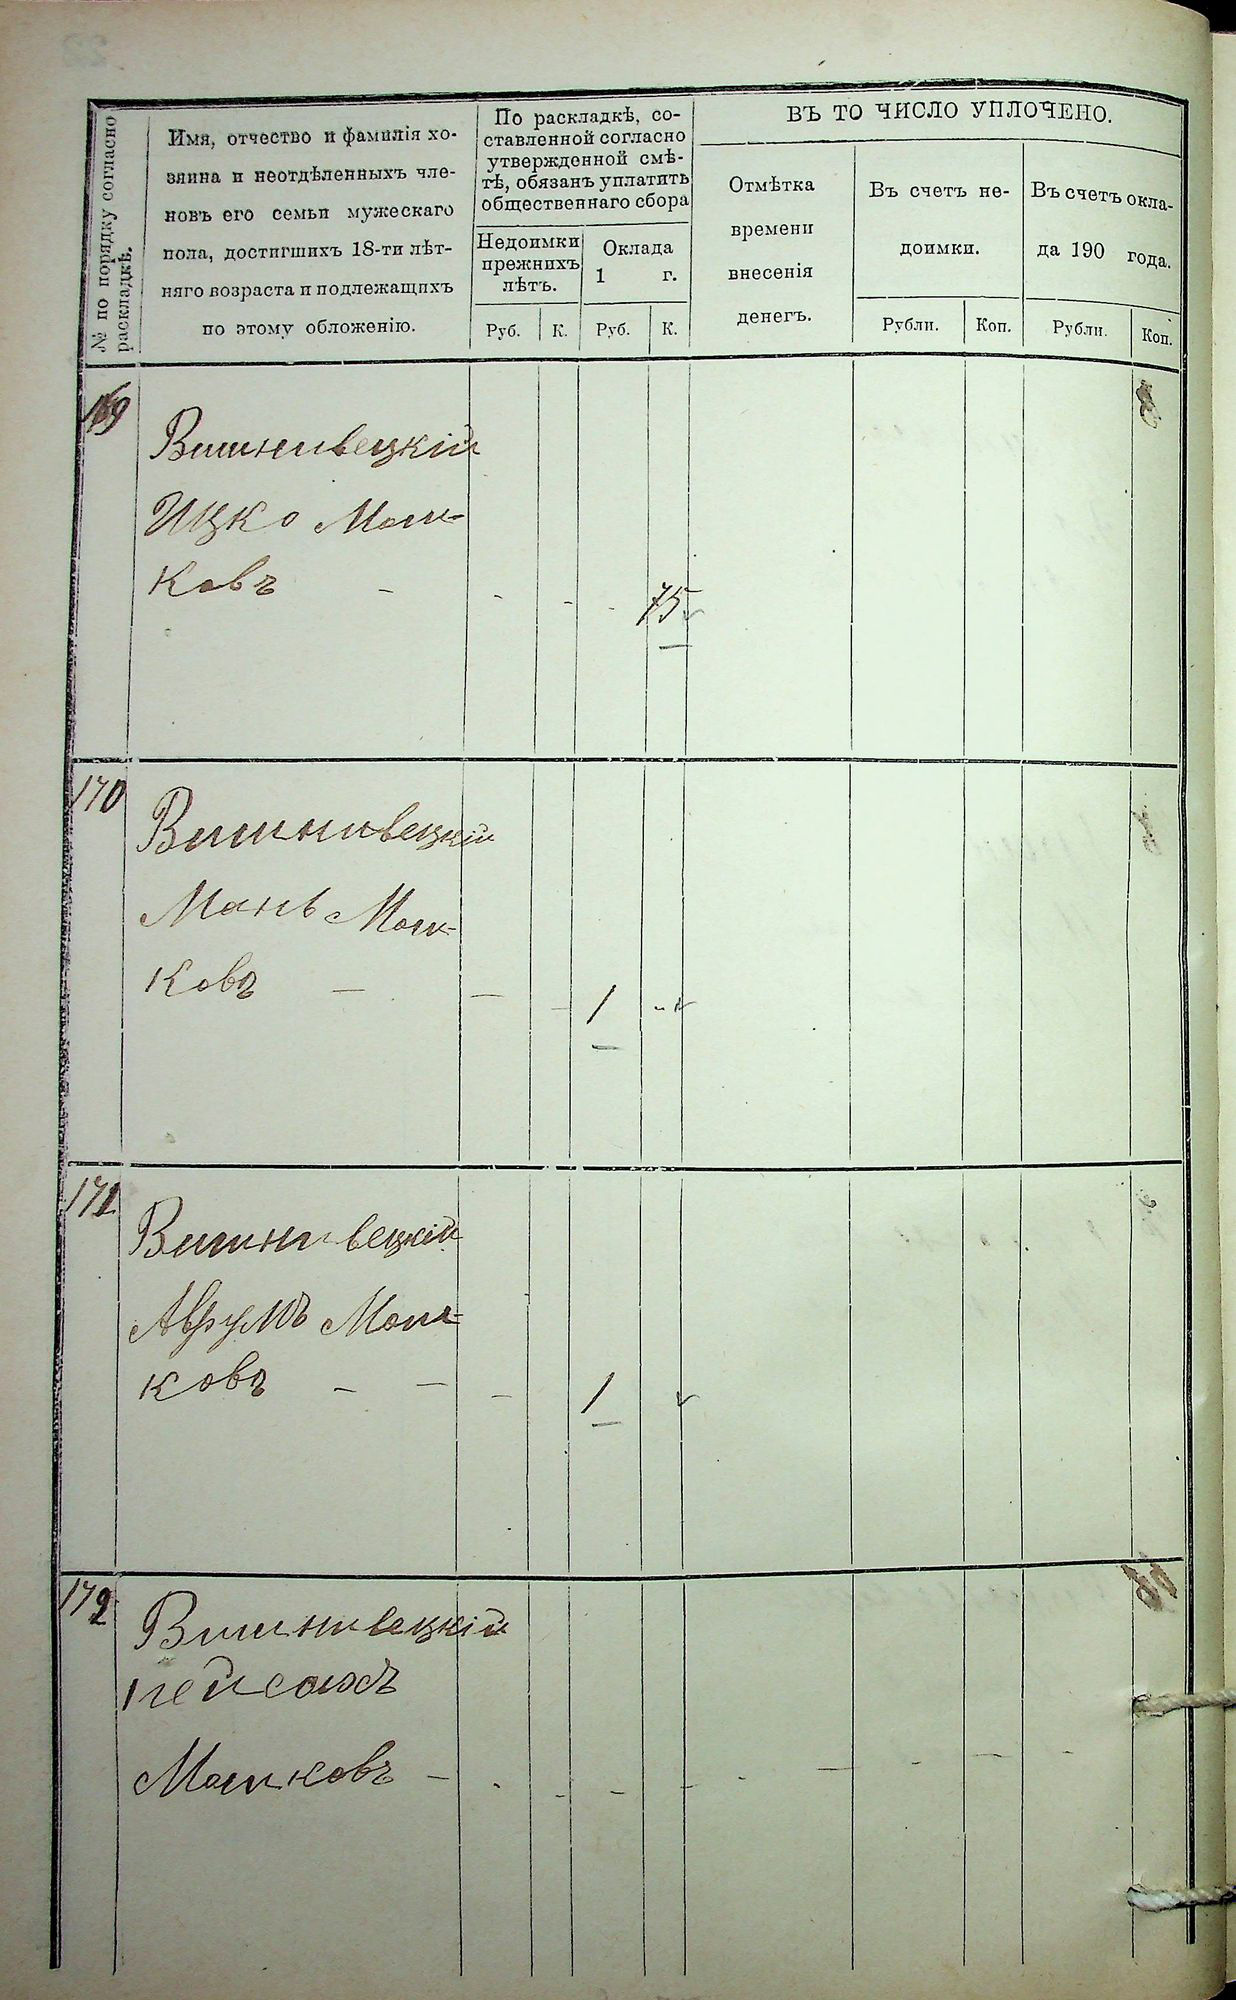 № по порядку согласно
раскладкѣ.
Имя, отчество и фамилія хо-
зяина и неотдѣленныхъ чле-
новъ его семьи мужескаго
пола, достигшихъ 18-ти лѣт-
няго возраста и подлежащихъ
по этому обложенію.
По раскладкѣ, со-
ставленной согласно
утвержденной смѣ-
тѣ, обязанъ уплатить
общественнаго сбора
Недоимки
прежнихъ
лѣтъ.
Оклада
1 г.
Руб. К. Руб. К.
ВЪ ТО ЧИСЛО УПЛОЧЕНО.
Отмѣтка
времени
внесенія
денегъ.
Въ счетъ не-
доимки.
Въ счетъ окла-
да 190 года.
Рубли. Коп. Рубли. Коп.
169
Вишнивецкій
Ицко Мош-
ковъ - - - - 75
170
Вишнивецкій
Мань Мош-
ковъ - - - 1 "
171
Вишнивецкій
Аврумъ Мош-
ковъ - - - 1
172
Вишнивецкій
Пейсахъ
Мошковъ - - - - - - - - -